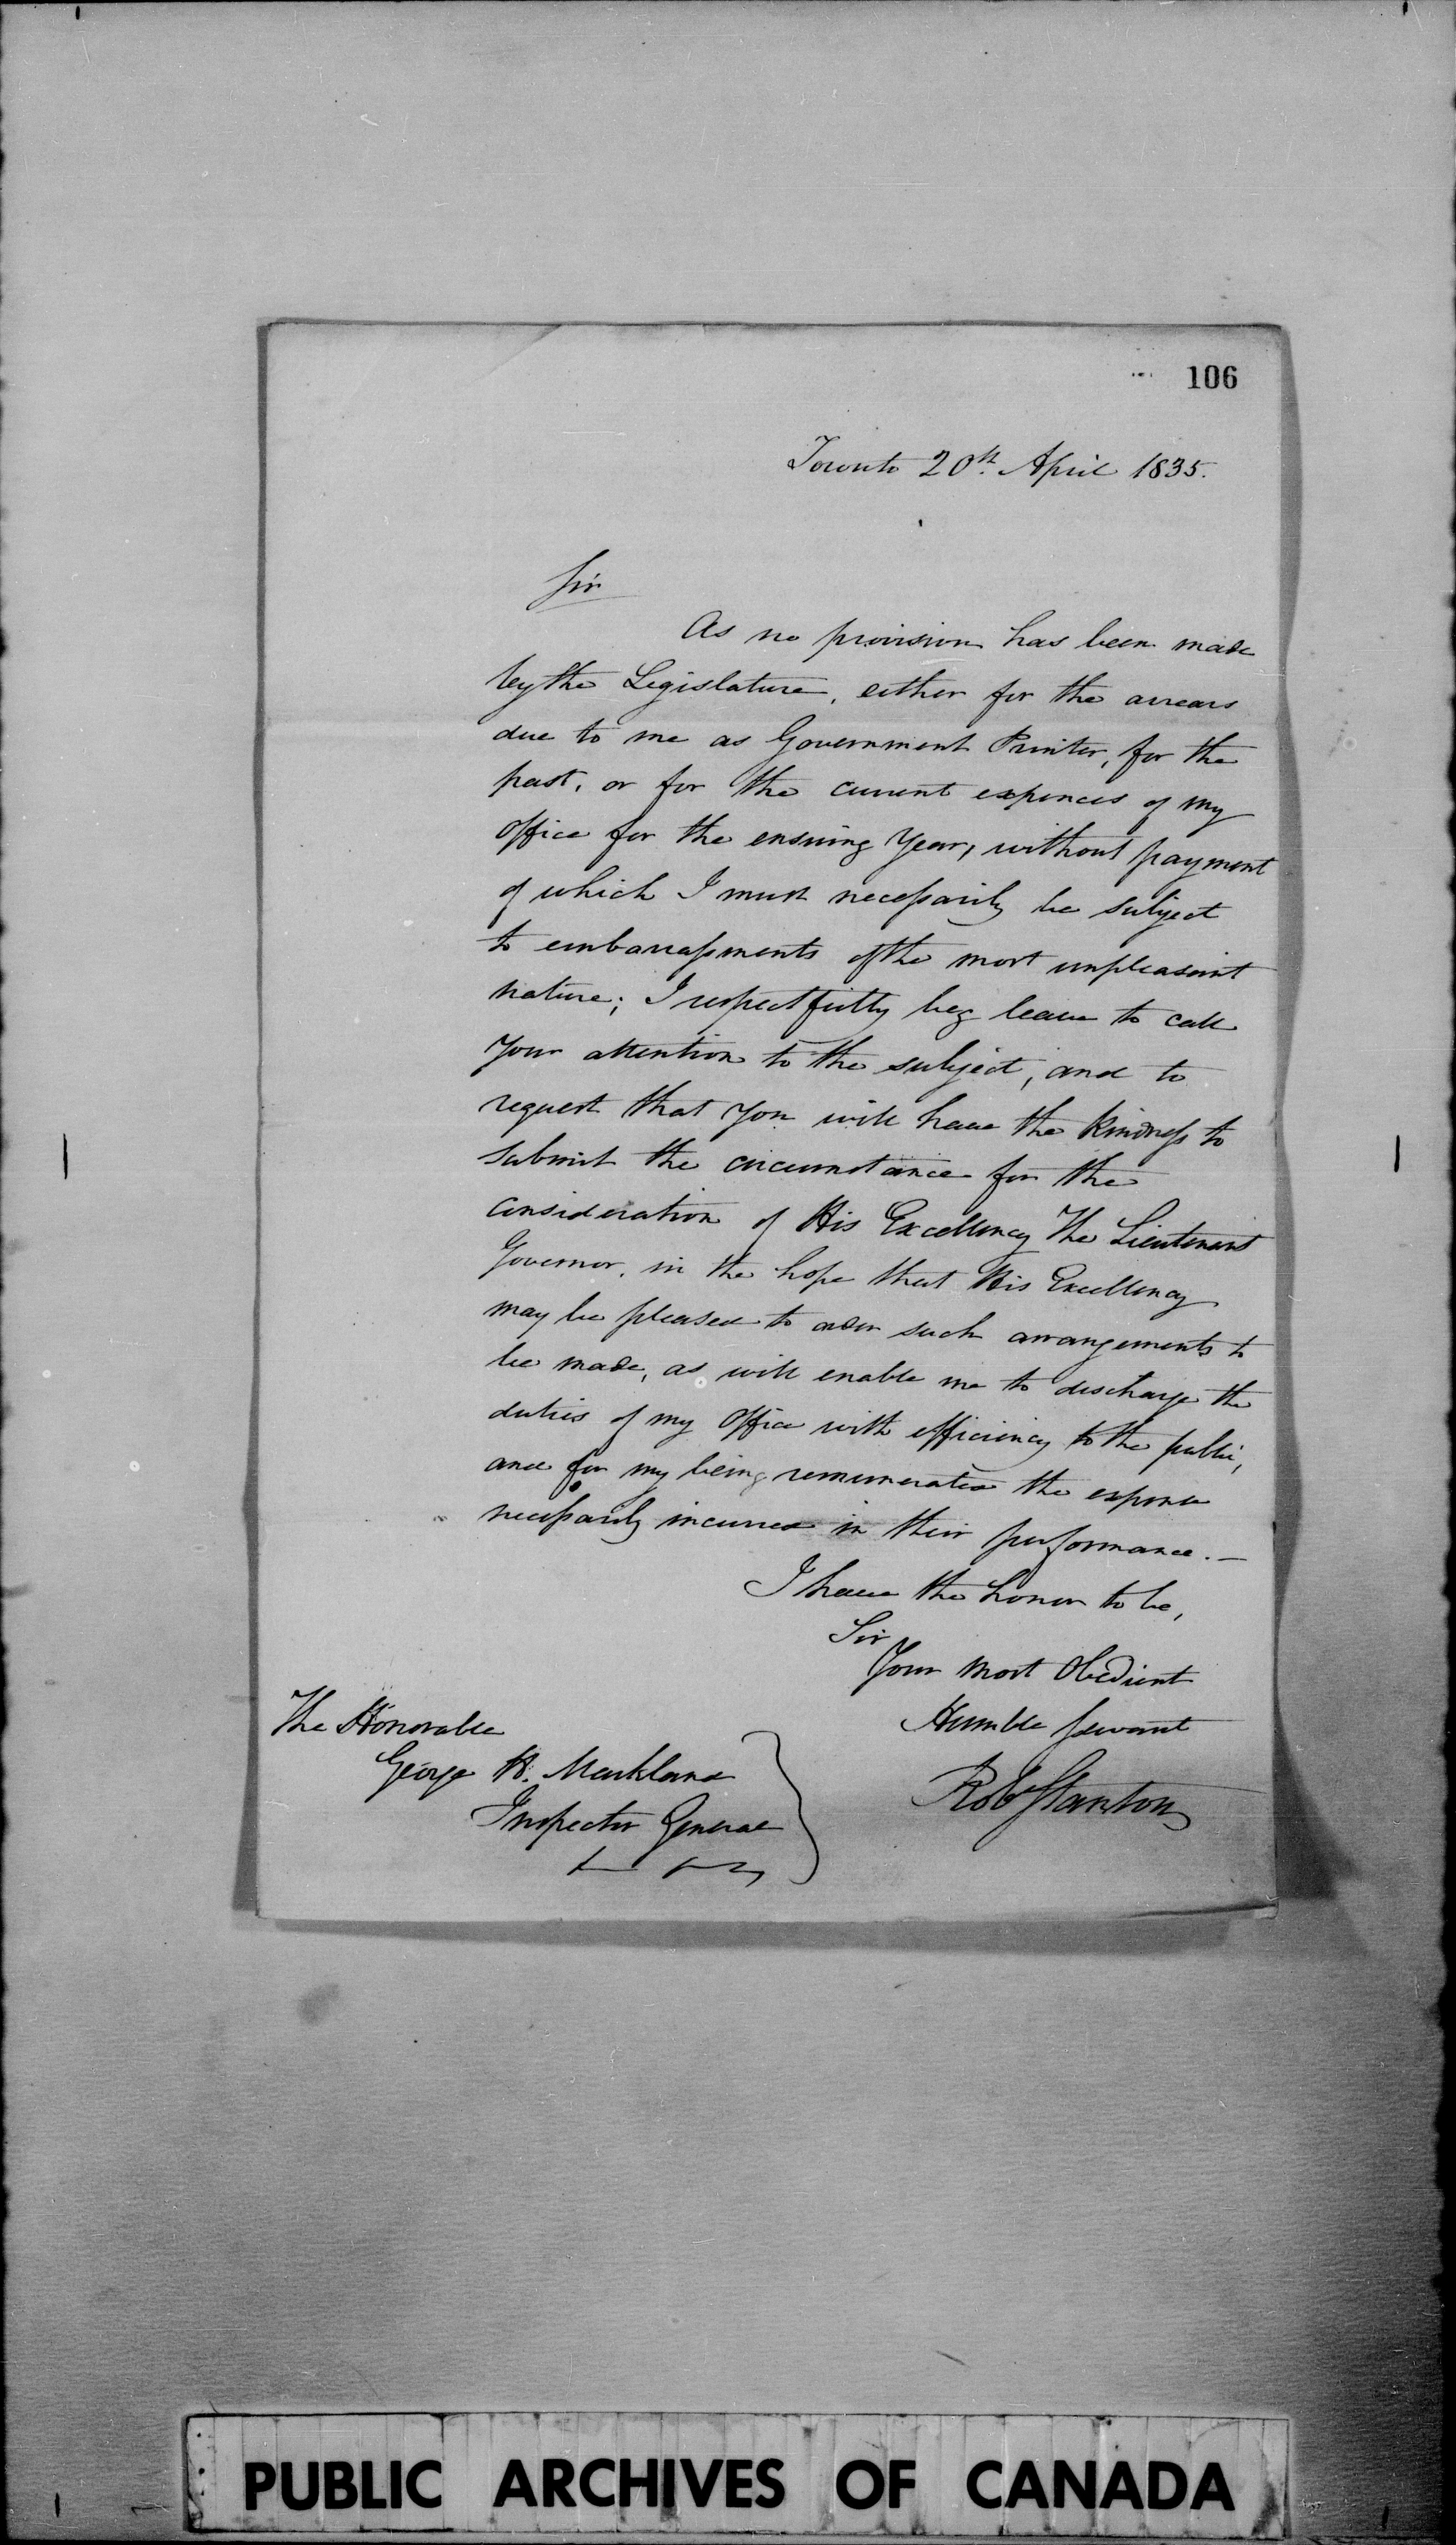 106
Toronto 20th. April 1835.
Sir
As no provision has been made
by the Legislature, either for the arrears
due to me as Government Printer, for the
past, or for the current expences of my
Office for the ensuing Year, without payment
of which I must necessarily be subject
to embarrassments of the most unpleasant
nature; I respectfully beg leave to call
Your attention to the subject, and to
request that You will have the kindness to
submit the circumstance for the
consideration of His Excellency The Lieutenant
Governor, in the hope that His Excellency
may be pleased to order such arrangements to
be made, as will enable me to discharge the
duties of my Office with efficiency to the public,
and for my being remunerated the expense
necessarily incurred in their performance.—
I have the honor to be,
Sir
Your Most Obedient
Humble Servant
Rob Stanton
The Honorable
George H. Markland
Inspector General
PUBLIC ARCHIVES OF CANADA